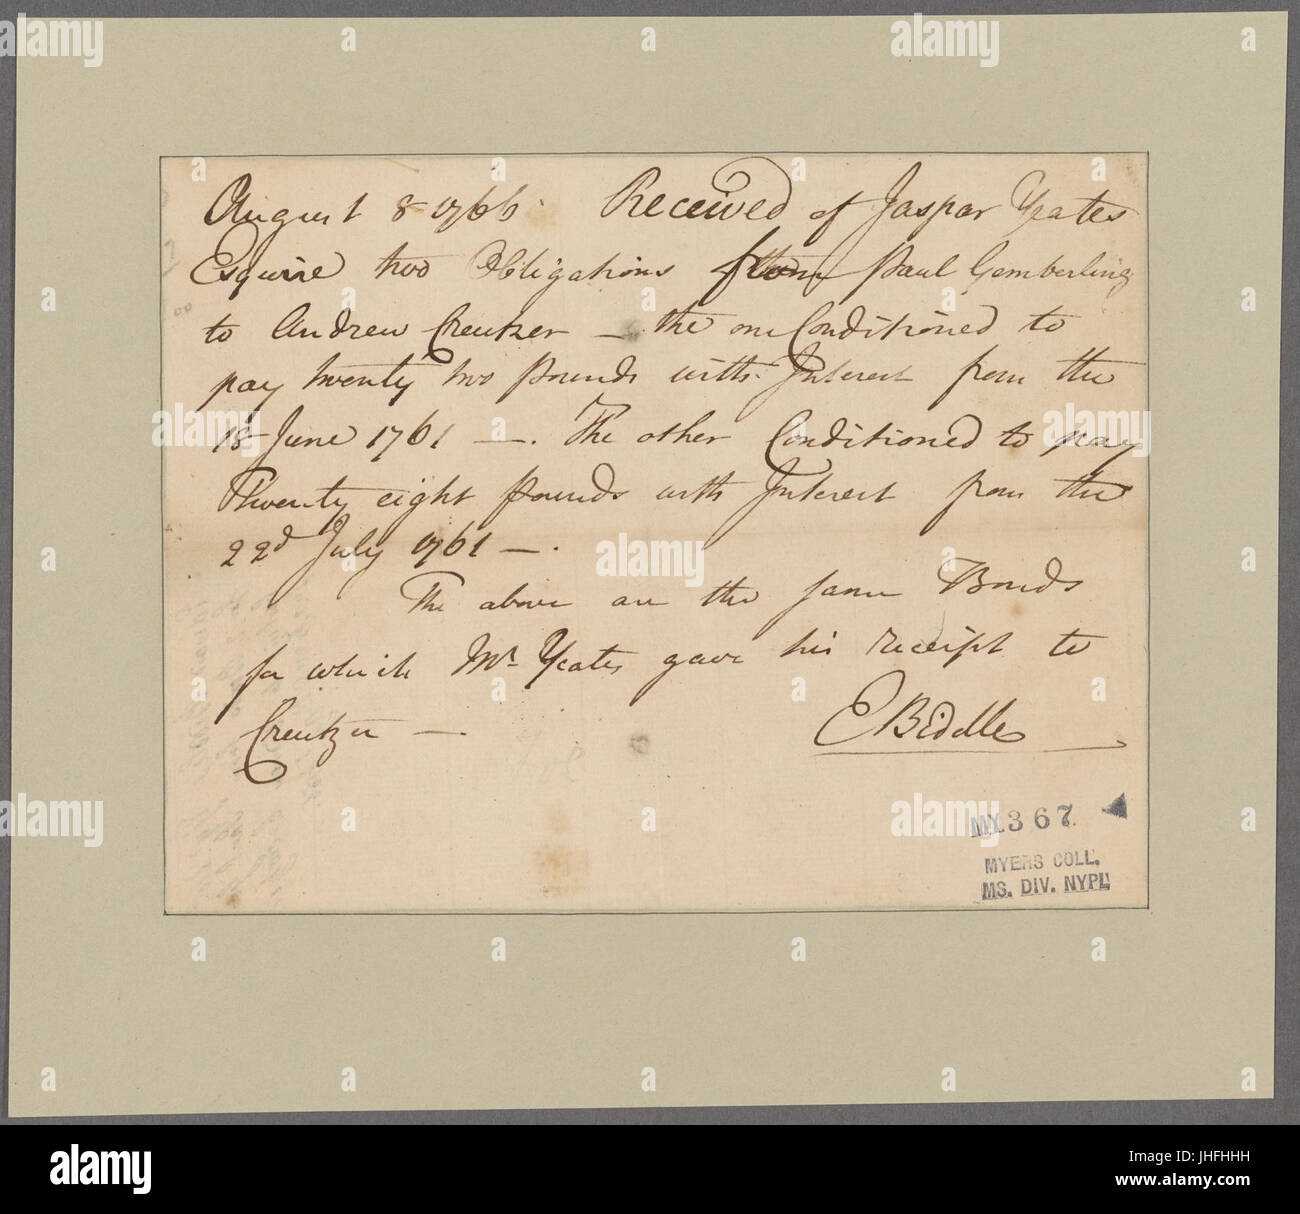 August 8 1766 Received of Jaspar Yeates
Esquire two Obligations from Paul Gemberling
to Andrew Creutzer — the one Conditioned to
pay twenty two Pounds with Interest from the
18 June 1761 —. The other Conditioned to pay
Twenty eight Pounds with Interest from the
22d July 1761 —.
The above are the same Bonds
for which Mr Yeates gave his receipt to
Creutzer —
E Biddle
MY 367
MYERS COLL.
MS. DIV. NYPL
alamy
alamy
Image ID: JHFHHH
www.alamy.com